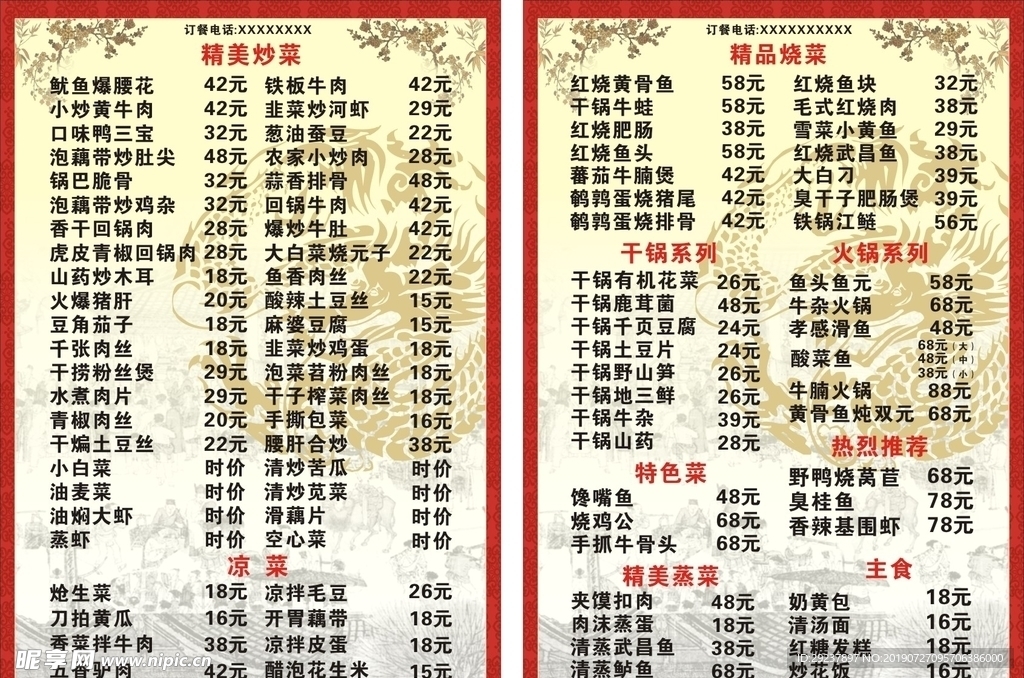 订餐电话:XXXXXXXX
精美炒菜
鱿鱼爆腰花 42元 铁板牛肉 42元
小炒黄牛肉 42元 韭菜炒河虾 29元
口味鸭三宝 32元 葱油蚕豆 22元
泡藕带炒肚尖 48元 农家小炒肉 28元
锅巴脆骨 32元 蒜香排骨 48元
泡藕带炒鸡杂 32元 回锅牛肉 42元
香干回锅肉 28元 爆炒牛肚 42元
虎皮青椒回锅肉 28元 大白菜烧元子 22元
山药炒木耳 18元 鱼香肉丝 22元
火爆猪肝 20元 酸辣土豆丝 15元
豆角茄子 18元 麻婆豆腐 15元
千张肉丝 18元 韭菜炒鸡蛋 18元
干捞粉丝煲 29元 泡菜苕粉肉丝 18元
水煮肉片 29元 干子榨菜肉丝 18元
青椒肉丝 20元 手撕包菜 16元
干煸土豆丝 22元 腰肝合炒 38元
小白菜 时价 清炒苦瓜 时价
油麦菜 时价 清炒苋菜 时价
油焖大虾 时价 滑藕片 时价
蒸虾 时价 空心菜 时价
凉 菜
炝生菜 18元 凉拌毛豆 26元
刀拍黄瓜 16元 开胃藕带 18元
香菜拌牛肉 38元 凉拌皮蛋 18元
五香驴肉 42元 醋泡花生米 15元
订餐电话:XXXXXXXXXX
精品烧菜
红烧黄骨鱼 58元 红烧鱼块 32元
干锅牛蛙 58元 毛式红烧肉 38元
红烧肥肠 38元 雪菜小黄鱼 29元
红烧鱼头 58元 红烧武昌鱼 38元
蕃茄牛腩煲 42元 大白刁 39元
鹌鹑蛋烧猪尾 42元 臭干子肥肠煲 39元
鹌鹑蛋烧排骨 42元 铁锅江鲢 56元
干锅系列
干锅有机花菜 26元
干锅鹿茸菌 48元
干锅千页豆腐 24元
干锅土豆片 24元
干锅野山笋 26元
干锅地三鲜 26元
干锅牛杂 39元
干锅山药 28元
特色菜
馋嘴鱼 48元
烧鸡公 68元
手抓牛骨头 68元
精美蒸菜
夹馍扣肉 48元
肉沫蒸蛋 18元
清蒸武昌鱼 38元
清蒸鲈鱼 68元
火锅系列
鱼头鱼元 58元
牛杂火锅 68元
孝感滑鱼 48元
酸菜鱼 68元(大)
48元(中)
38元(小)
牛腩火锅 88元
黄骨鱼炖双元 68元
热烈推荐
野鸭烧莴苣 68元
臭桂鱼 78元
香辣基围虾 78元
主食
奶黄包 18元
清汤面 16元
红糖发糕 18元
炒花饭 16元
昵享网 www.nipic.cn
ID:29237897 NO:20190727095706386000